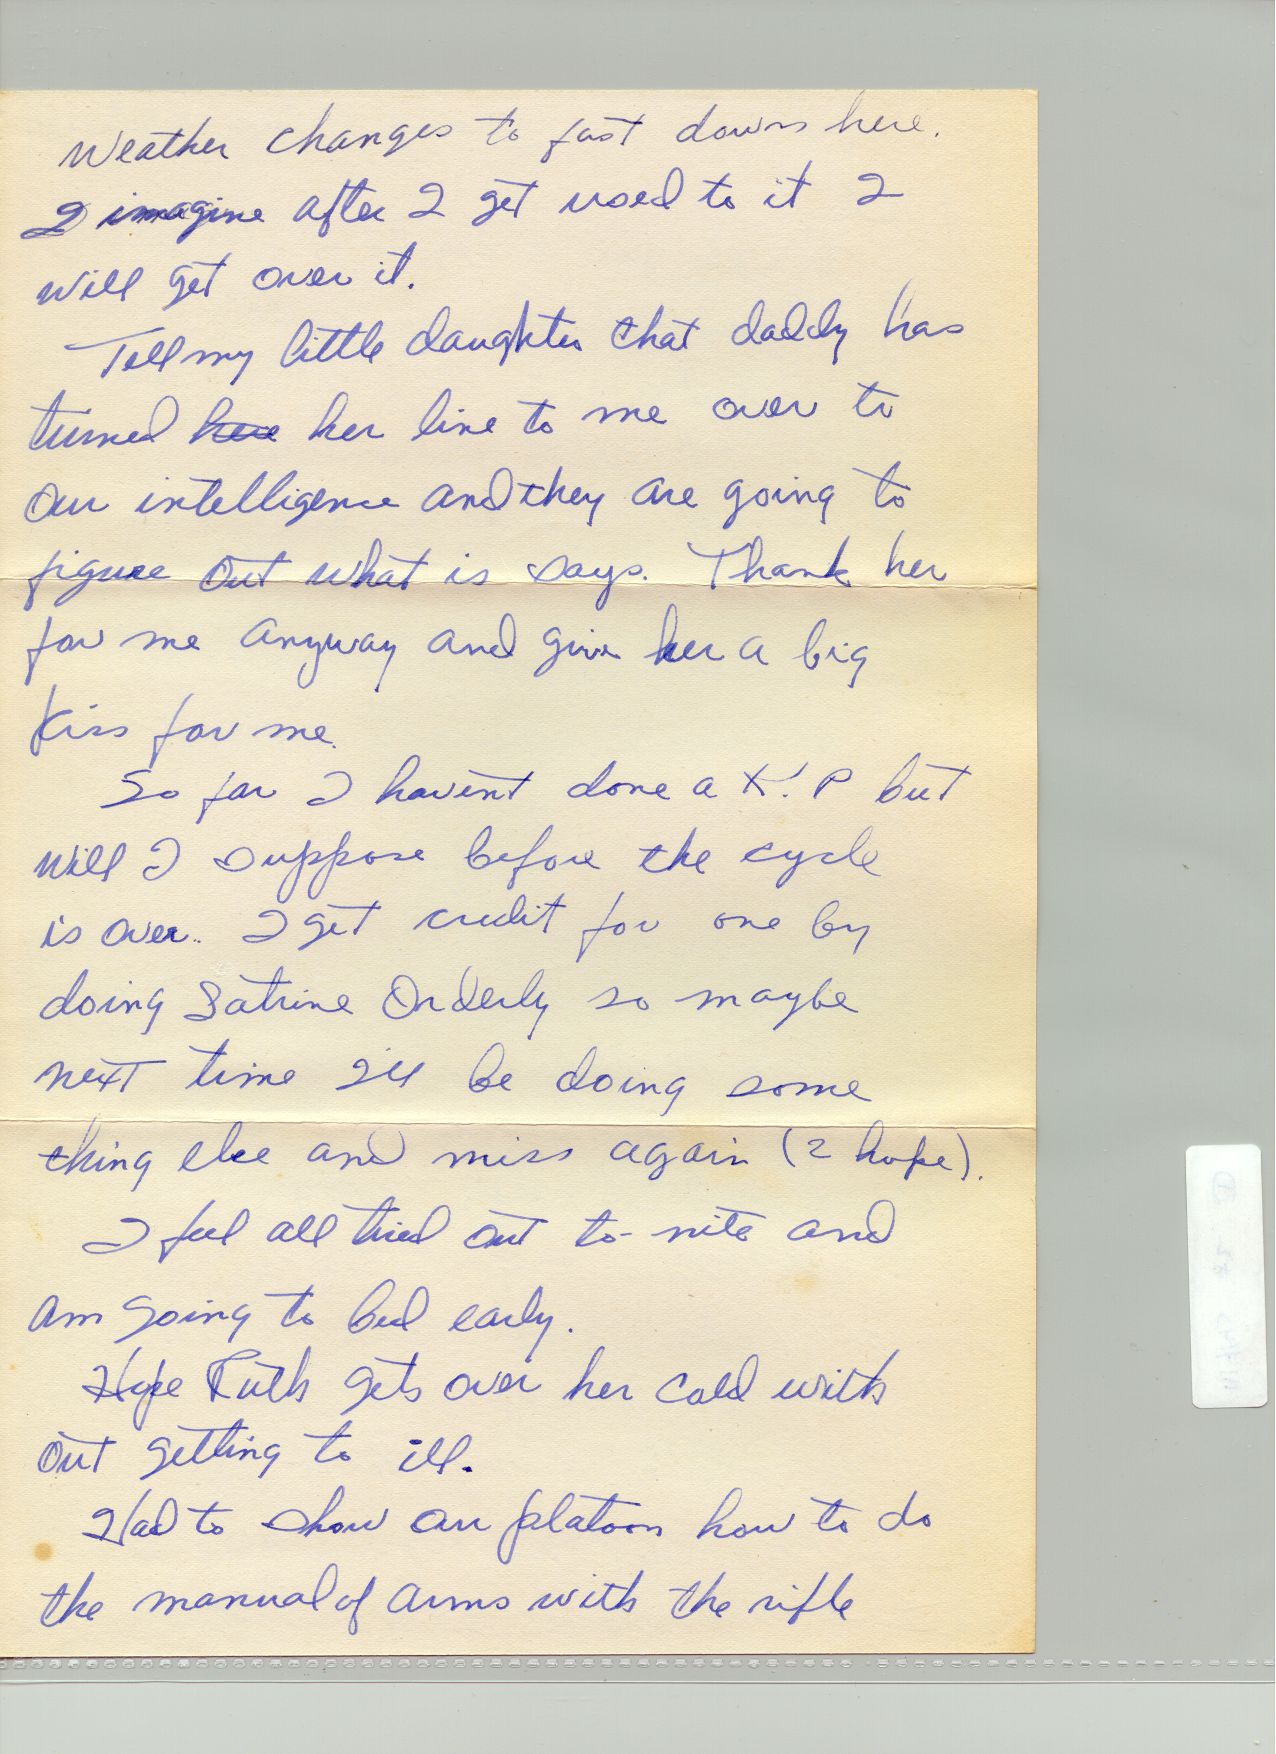 Weather changes to fast down here.
I imagine after I get used to it I
will get over it.
Tell my little daughter that daddy has
turned here her line to me over to
our intelligence and they are going to
figure out what is says. Thank her
for me anyway and give her a big
kiss for me.
So far I haven't done a K.P but
will I suppose before the cycle
is over. I get credit for one by
doing Latrine Orderly so maybe
next time I'll be doing some
thing else and miss again (I hope).
I feel all tried out to-nite and
am going to bed early.
Hope Ruth gets over her cold with
out getting to ill.
Had to show our platoon how to do
the manual of arms with the rifle